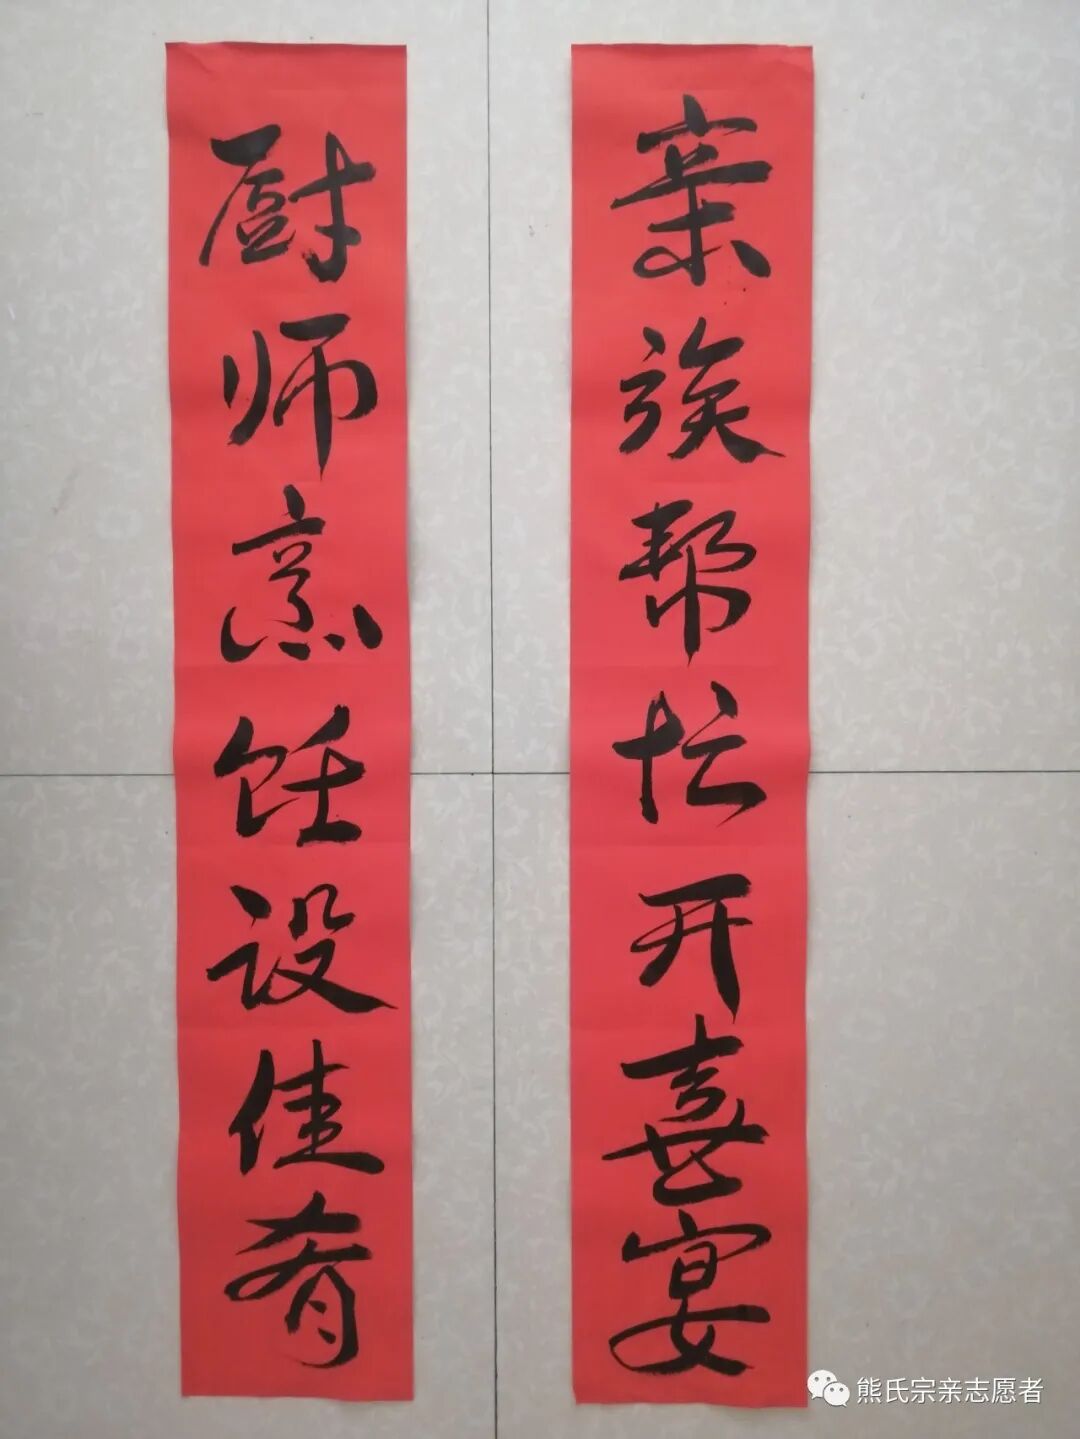 亲族帮忙开喜宴
厨师烹饪设佳肴
熊氏宗亲志愿者